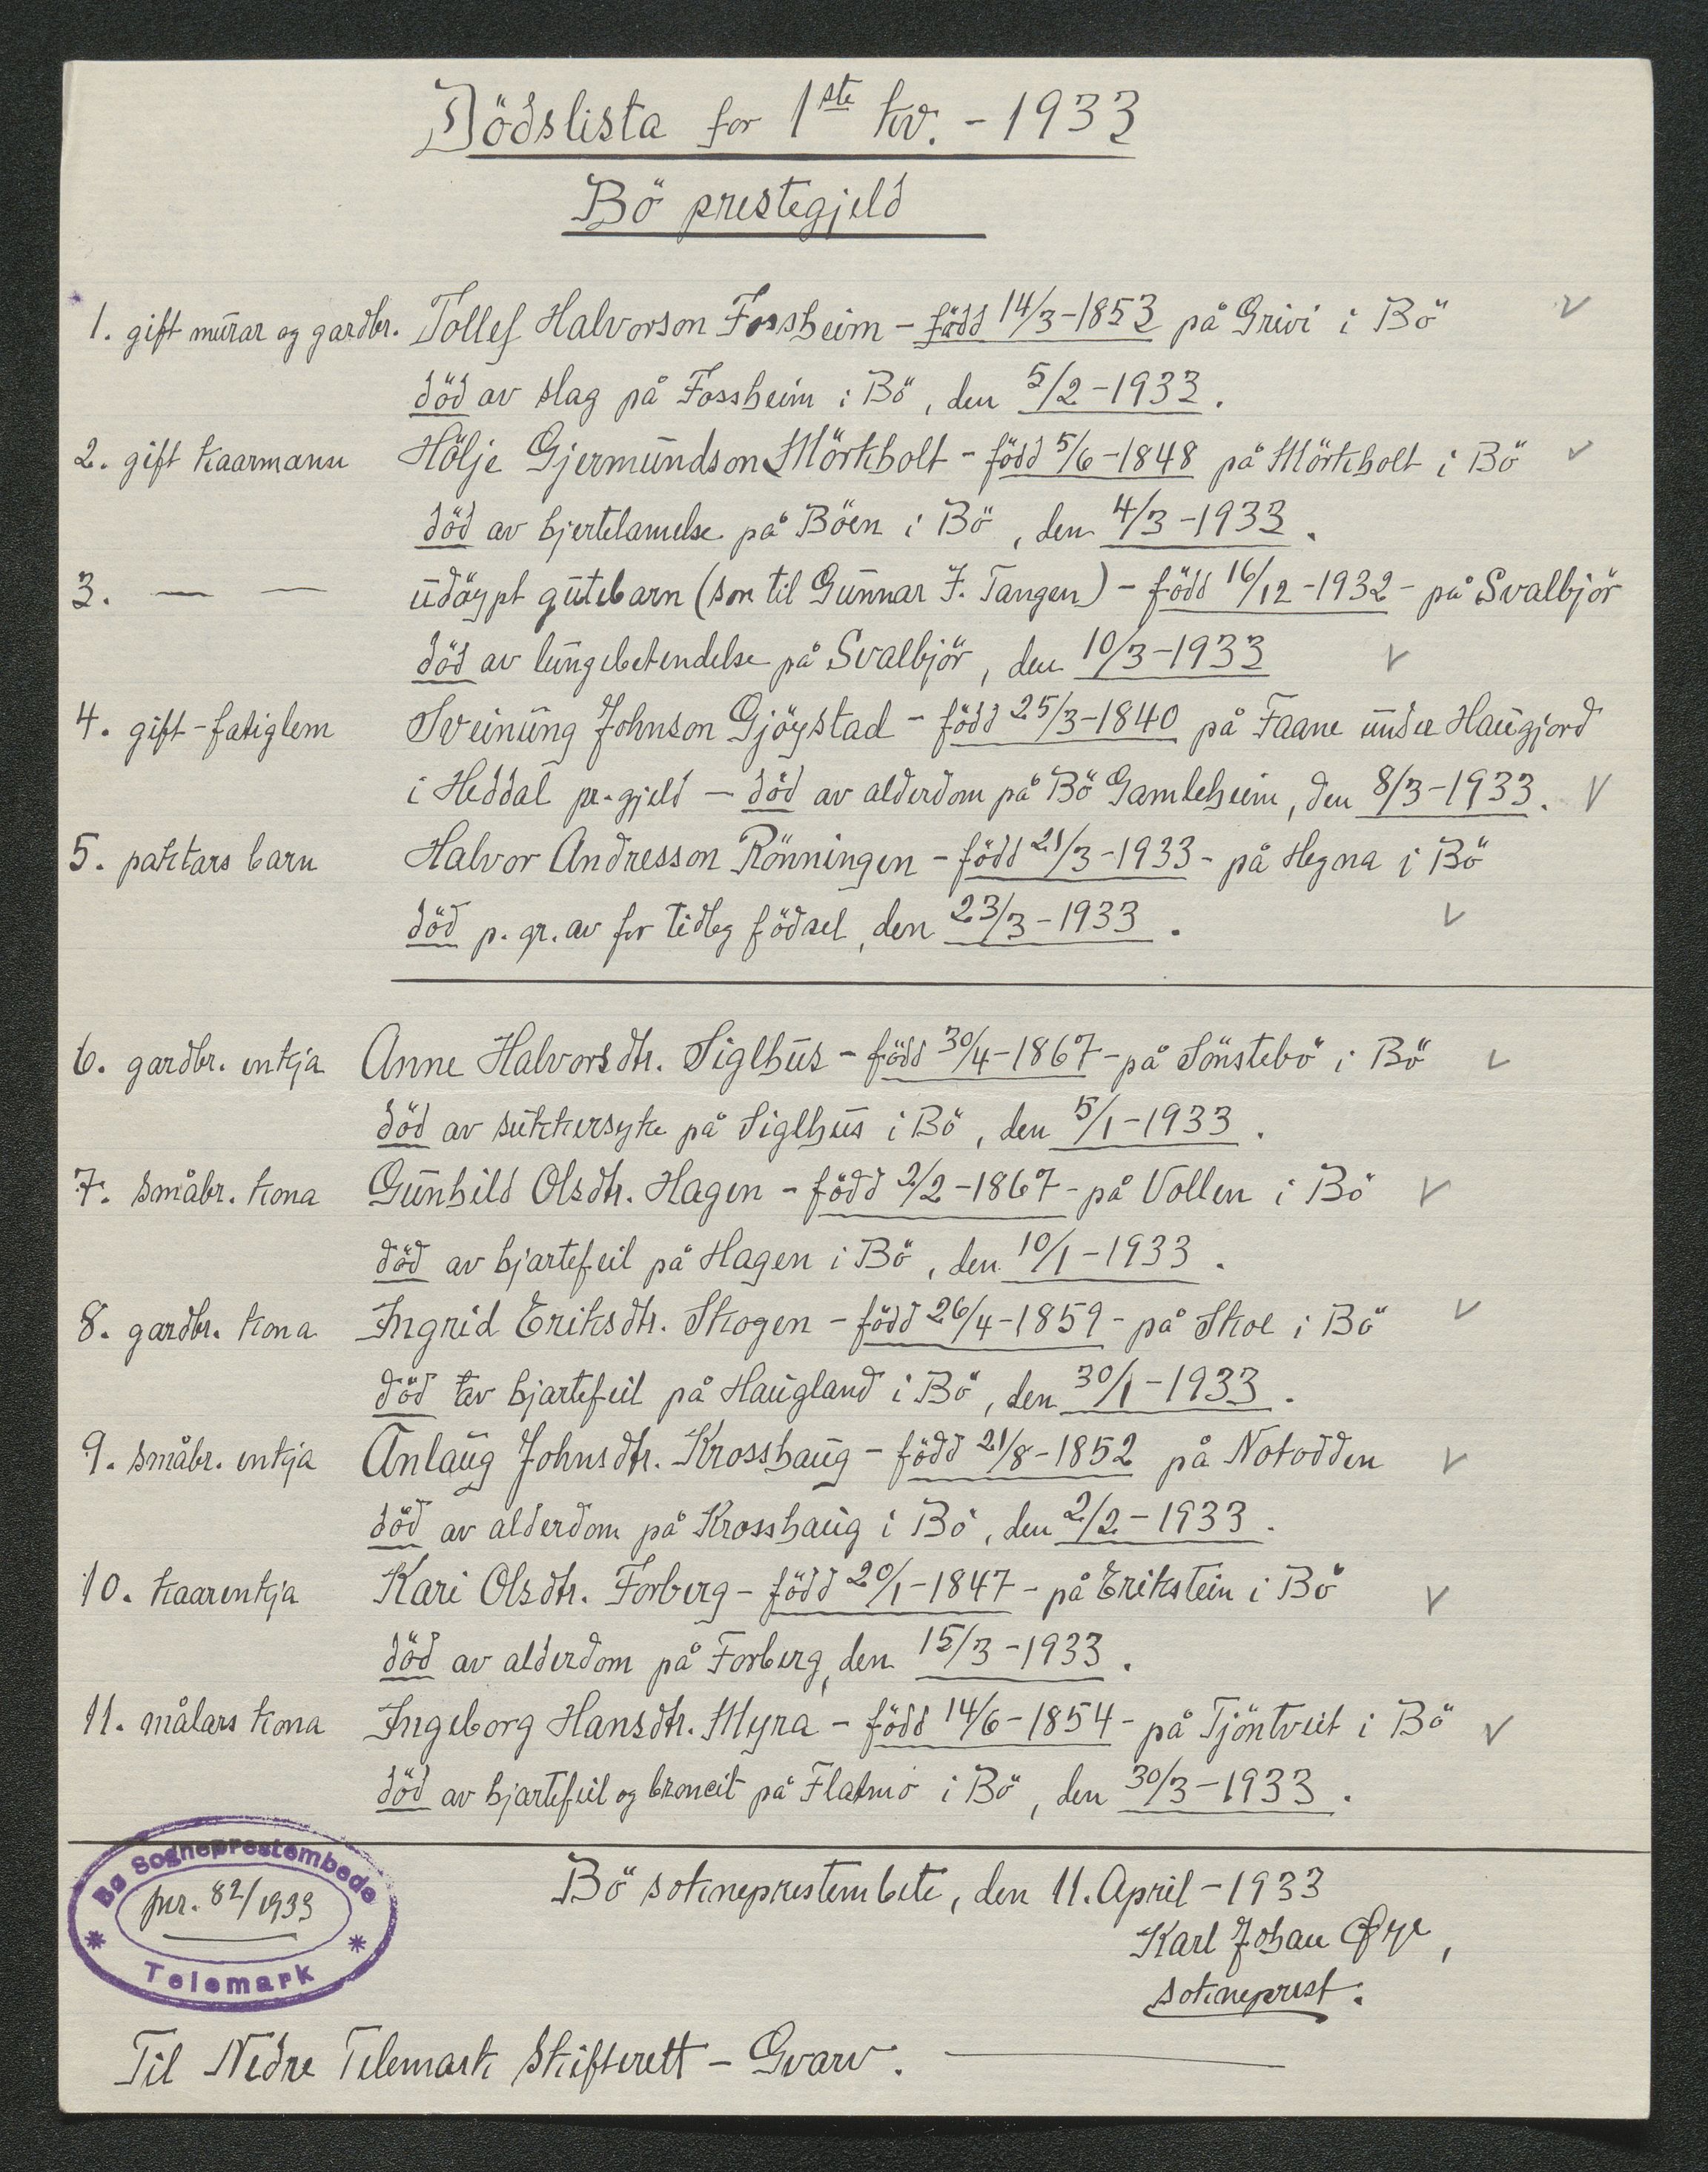 Dödslista for 1ste kv. - 1933
Bö prestegjeld
1. gift murar og gardbr. Tollef Halvorson Fossheim - född 14/3-1853 på Grivi i Bö
död av slag på Fossheim i Bö, den 5/2-1933.
2. gift kaarmann Hölje Gjermundson Mörkholt - född 5/6-1848 på Mörkholt i Bö
död av hjertelamelse på Böen i Bö, den 4/3-1933.
3. — — udöypt gutebarn (son til Gunnar J. Tangen) - född 16/12-1932 - på Svalbjör
död av lungebetendelse på Svalbjör, den 10/3-1933
4. gift - fatiglem Sveinung Johnson Gjöystad - född 25/3-1840 på Faane under Haugjord
i Heddal pr.gjeld - död av alderdom på Bö Gamleheim, den 8/3-1933.
5. paktars barn Halvor Andresson Rönningen - född 21/3-1933 - på Hegna i Bö
död p. gr. av for tidleg födsel, den 23/3-1933.
6. gardbr. enkja Anne Halvorsdtr. Siglhus - född 30/4-1867 - på Sönstebö i Bö
död av sukkersyke på Siglhus i Bö, den 5/1-1933.
7. småbr. kona Gunhild Olsdtr. Hagen - född 2/2-1867 - på Vollen i Bö
död av hjartefeil på Hagen i Bö, den 10/1-1933.
8. gardbr. kona Ingrid Eriksdtr. Skogen - född 26/4-1859 - på Skoe i Bö
död av hjartefeil på Haugland i Bö, den 30/1-1933.
9. småbr. enkja Anlaug Johnsdtr. Krosshaug - född 21/8-1852 på Notodden
död av alderdom på Krosshaug i Bö, den 2/2-1933.
10. kaarenkja Kari Olsdtr. Forberg - född 20/1-1847 - på Erikstein i Bö
död av alderdom på Forberg, den 15/3-1933.
11. målars kona Ingeborg Hansdtr. Myra - född 14/6-1854 - på Tjöntveit i Bö
död av hjartefeil og broncit på Flatmo i Bö, den 30/3-1933.
Bö sokneprestembete, den 11. April - 1933
Bø Sogneprestembede
jnr. 82/1933
Telemark
Karl Johan Øye,
sokneprest.
Til Nedre Telemark Skifterett - Gvarv.